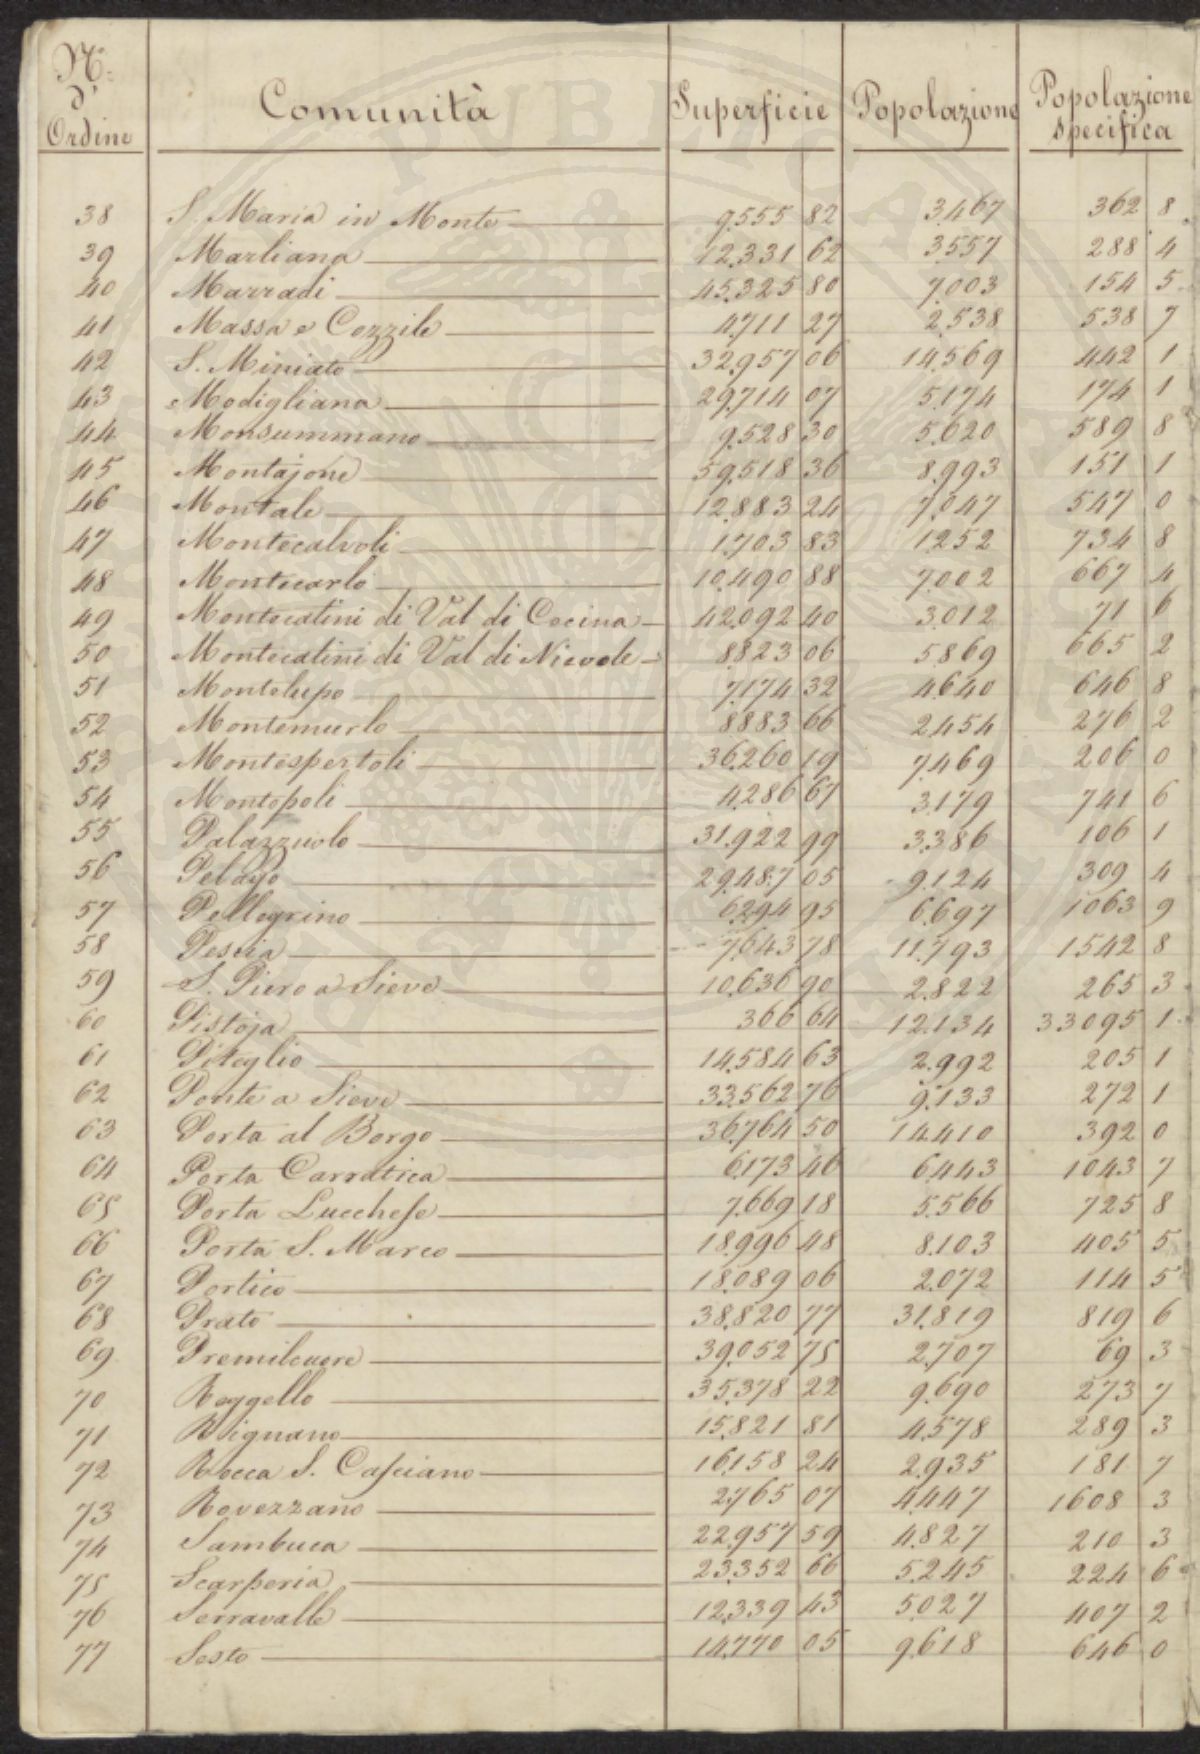 N.° d' Ordine | Comunità | Superficie | Popolazione | Popolazione specifica
38 S. Maria in Monte 9555 82 3.467 362 8
39 Marliana 12.331 62 3557 288 4
40 Marradi 45.325 80 7.003 154 5
41 Massa e Cozzile 4.711 27 2.538 538 7
42 S. Miniato 32.957 06 14.569 442 1
43 Modigliana 29.714 07 5.174 174 1
44 Monsummano 9.528 30 5.620 589 8
45 Montajone 59.518 36 8.993 151 1
46 Montale 12.883 24 7.047 547 0
47 Montecalvoli 1.703 83 1.252 734 8
48 Montecarlo 10.490 88 7.002 667 4
49 Montecatini di Val di Cecina 42.092 40 3.012 71 6
50 Montecatini di Val di Nievole 8.823 06 5.869 665 2
51 Montelupo 7.174 32 4.640 646 8
52 Montemurlo 8883 66 2.454 276 2
53 Montespertoli 36.260 19 7.469 206 0
54 Montopoli 4.286 67 3.179 741 6
55 Palazzuolo 31.922 99 3.386 106 1
56 Pelago 29.487 05 9.124 309 4
57 Pellegrino 6.294 95 6.697 1063 9
58 Pescia 7.643 78 11.793 1542 8
59 S. Piero a Sieve 10.636 90 2.822 265 3
60 Pistoja 366 64 12.134 33095 1
61 Piteglio 14.584 63 2.992 205 1
62 Ponte a Sieve 33.562 76 9.133 272 1
63 Porta al Borgo 36.764 50 14.410 392 0
64 Porta Carratica 6.173 46 6.443 1043 7
65 Porta Lucchese 7.669 18 5.566 725 8
66 Porta S. Marco 18.996 48 8.103 405 5
67 Portico 18.089 06 2.072 114 5
68 Prato 38.820 77 31.819 819 6
69 Premilcuore 39.052 75 2.707 69 3
70 Reggello 35.378 22 9.690 273 7
71 Rignano 15.821 81 4.578 289 3
72 Rocca S. Casciano 16.158 24 2.935 181 7
73 Rovezzano 2.765 07 4.447 1608 3
74 Sambuca 22.957 59 4.827 210 3
75 Scarperia 23.352 66 5.245 224 6
76 Serravalle 12.339 43 5.027 407 2
77 Sesto 14.770 05 9.618 646 0